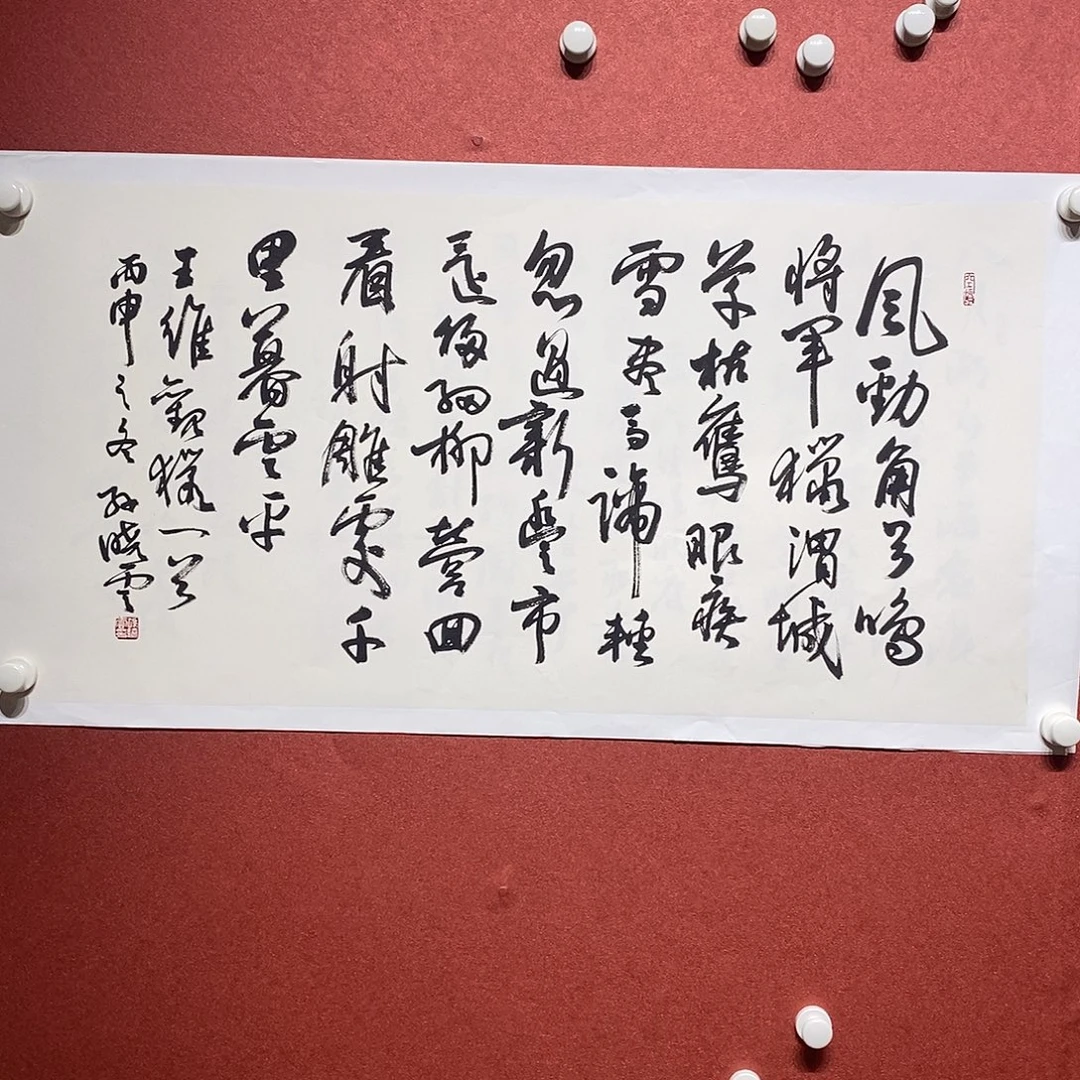 風勁角弓鳴
將軍獵渭城
草枯鷹眼疾
雪盡馬蹄輕
忽過新豐市
還歸細柳營回
看射雕處千
里暮雲平
王維觀獵一首
丙申之冬孫曉雲